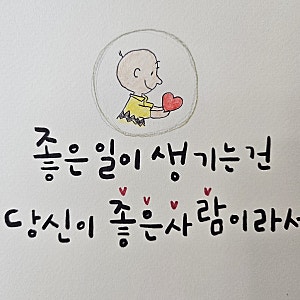 좋은일이 생기는건
당신이 좋은사람이라서